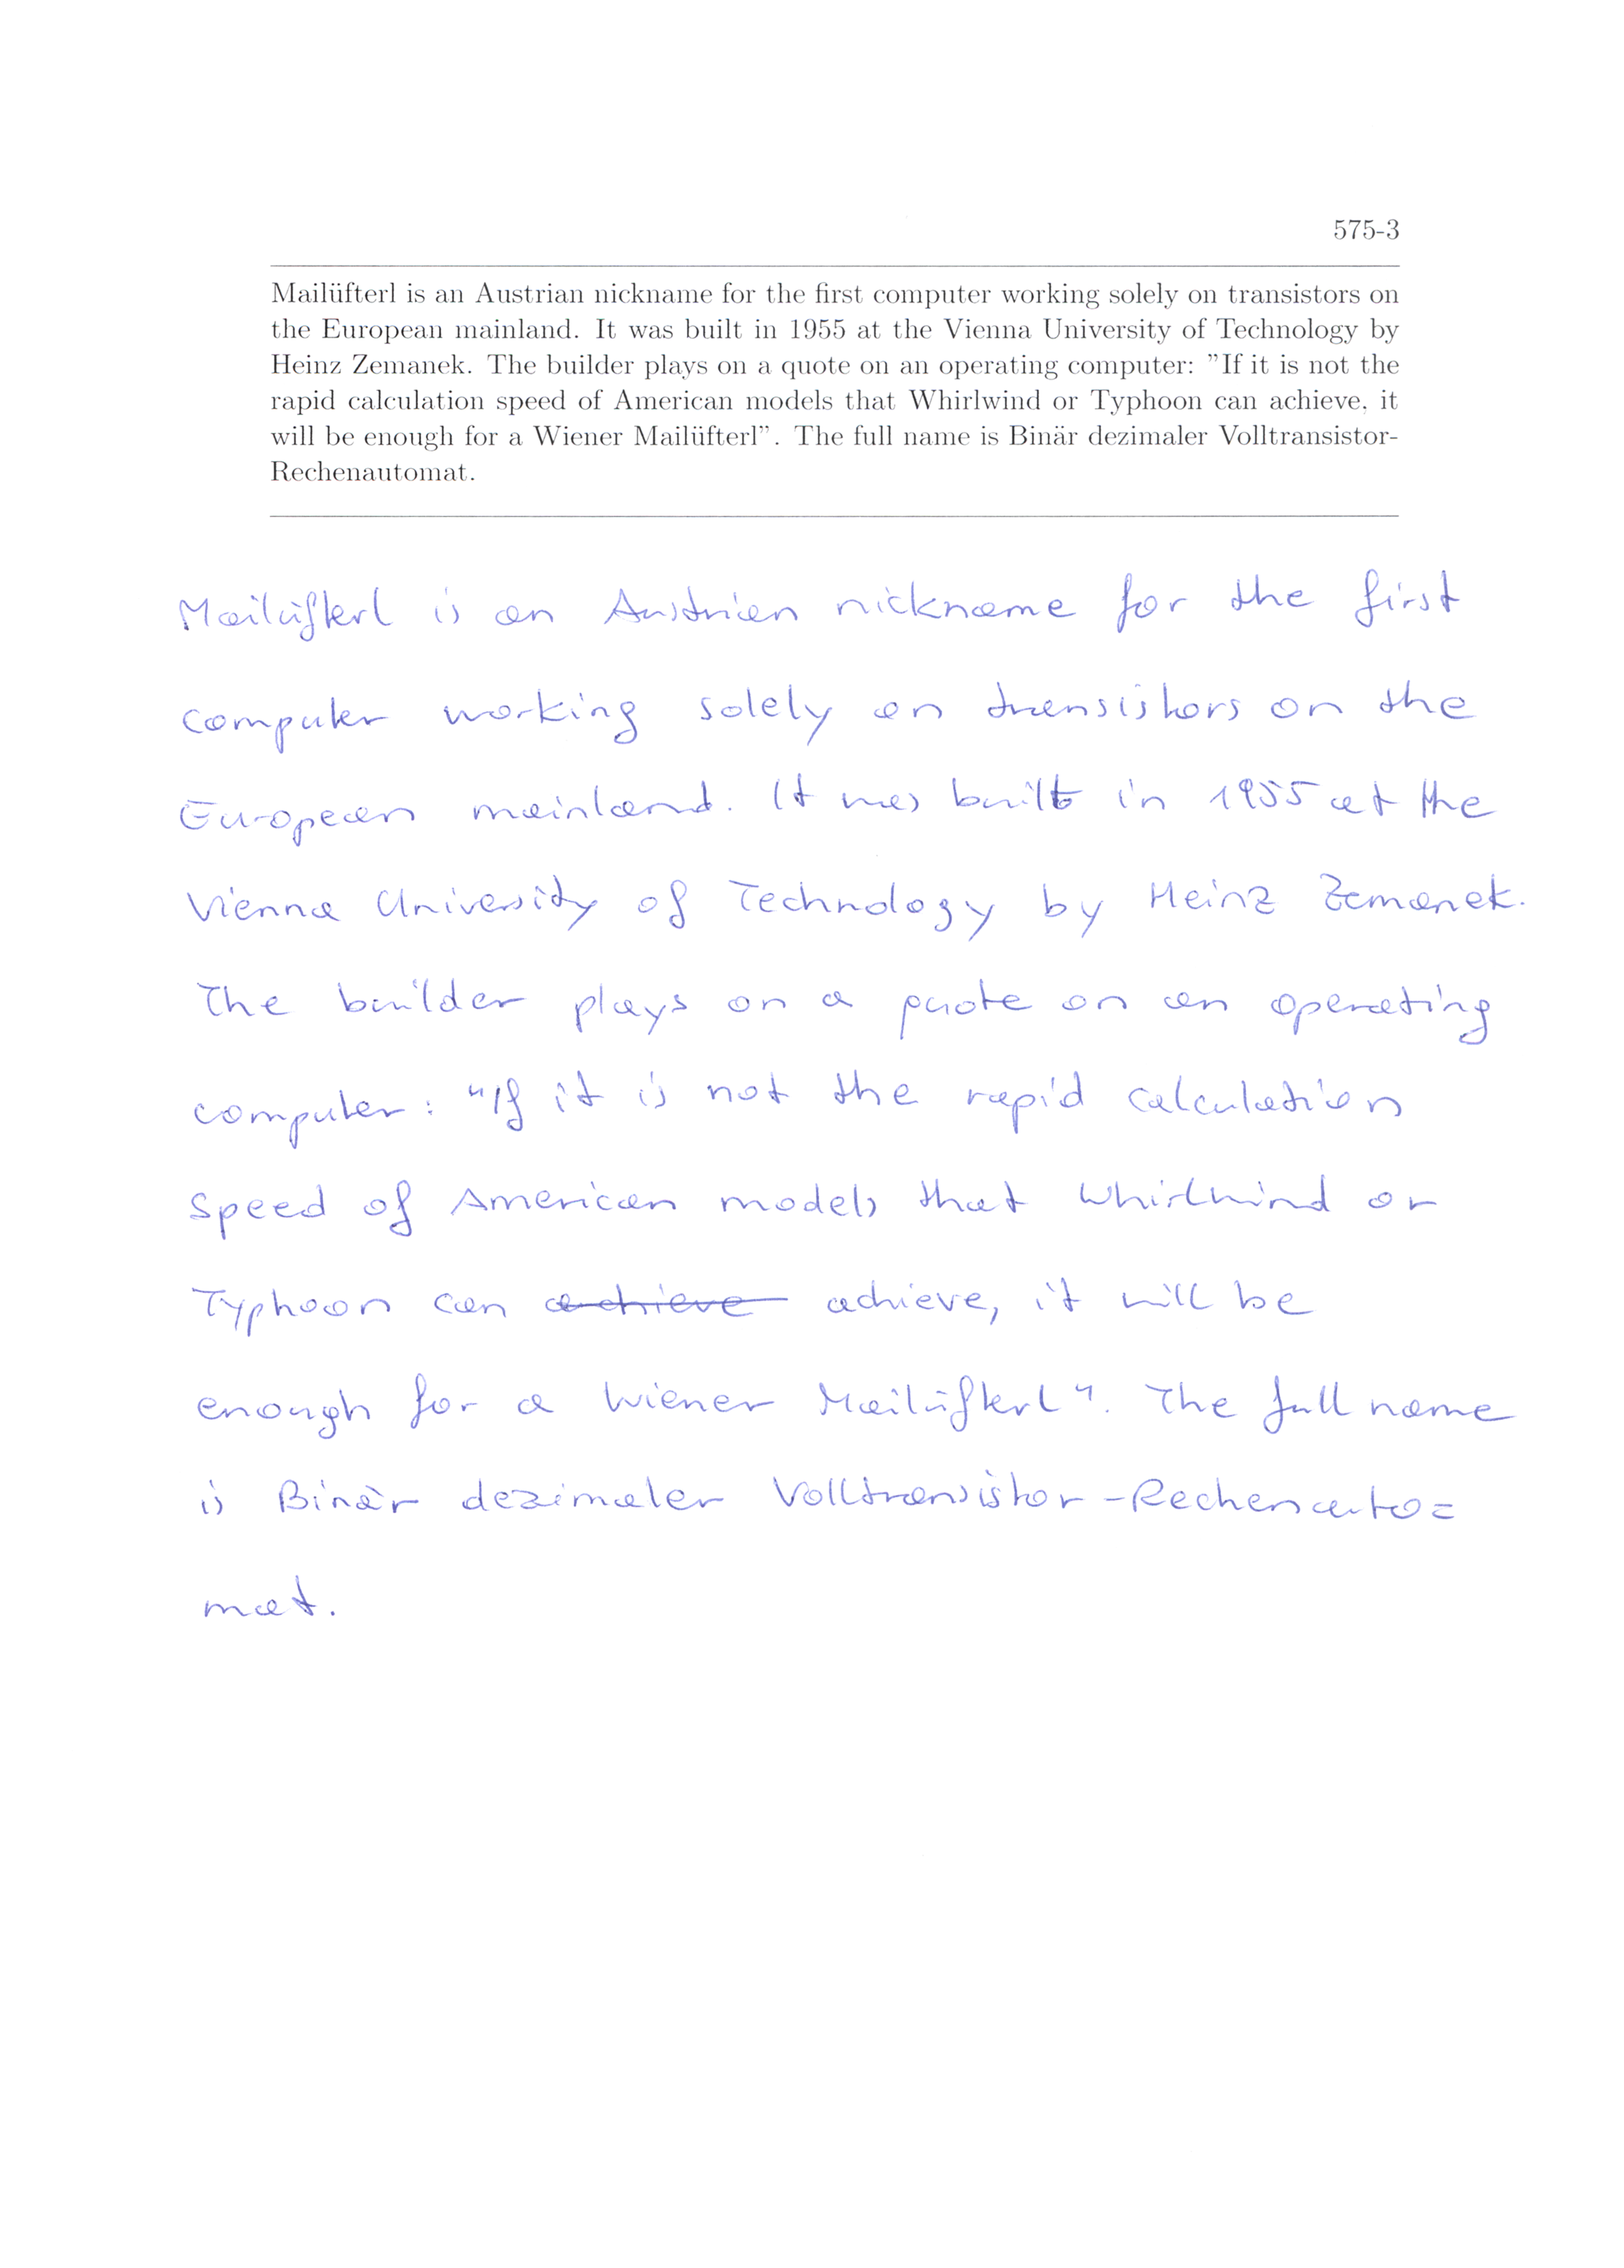 575-3
Mailüfterl is an Austrian nickname for the first computer working solely on transistors on
the European mainland. It was built in 1955 at the Vienna University of Technology by
Heinz Zemanek. The builder plays on a quote on an operating computer: "If it is not the
rapid calculation speed of American models that Whirlwind or Typhoon can achieve, it
will be enough for a Wiener Mailüfterl". The full name is Binär dezimaler Volltransistor-
Rechenautomat.
Mailüfterl is an Austrian nickname for the first
computer working solely on transistors on the
European mainland. It was built in 1955 at the
Vienna University of Technology by Heinz Zemanek.
The builder plays on a quote on an operating
computer: "If it is not the rapid calculation
speed of American models that Whirlwind or
Typhoon can achieve achieve, it will be
enough for a Wiener Mailüfterl". The full name
is Binär dezimaler Volltransistor-Rechenauto=
mat.